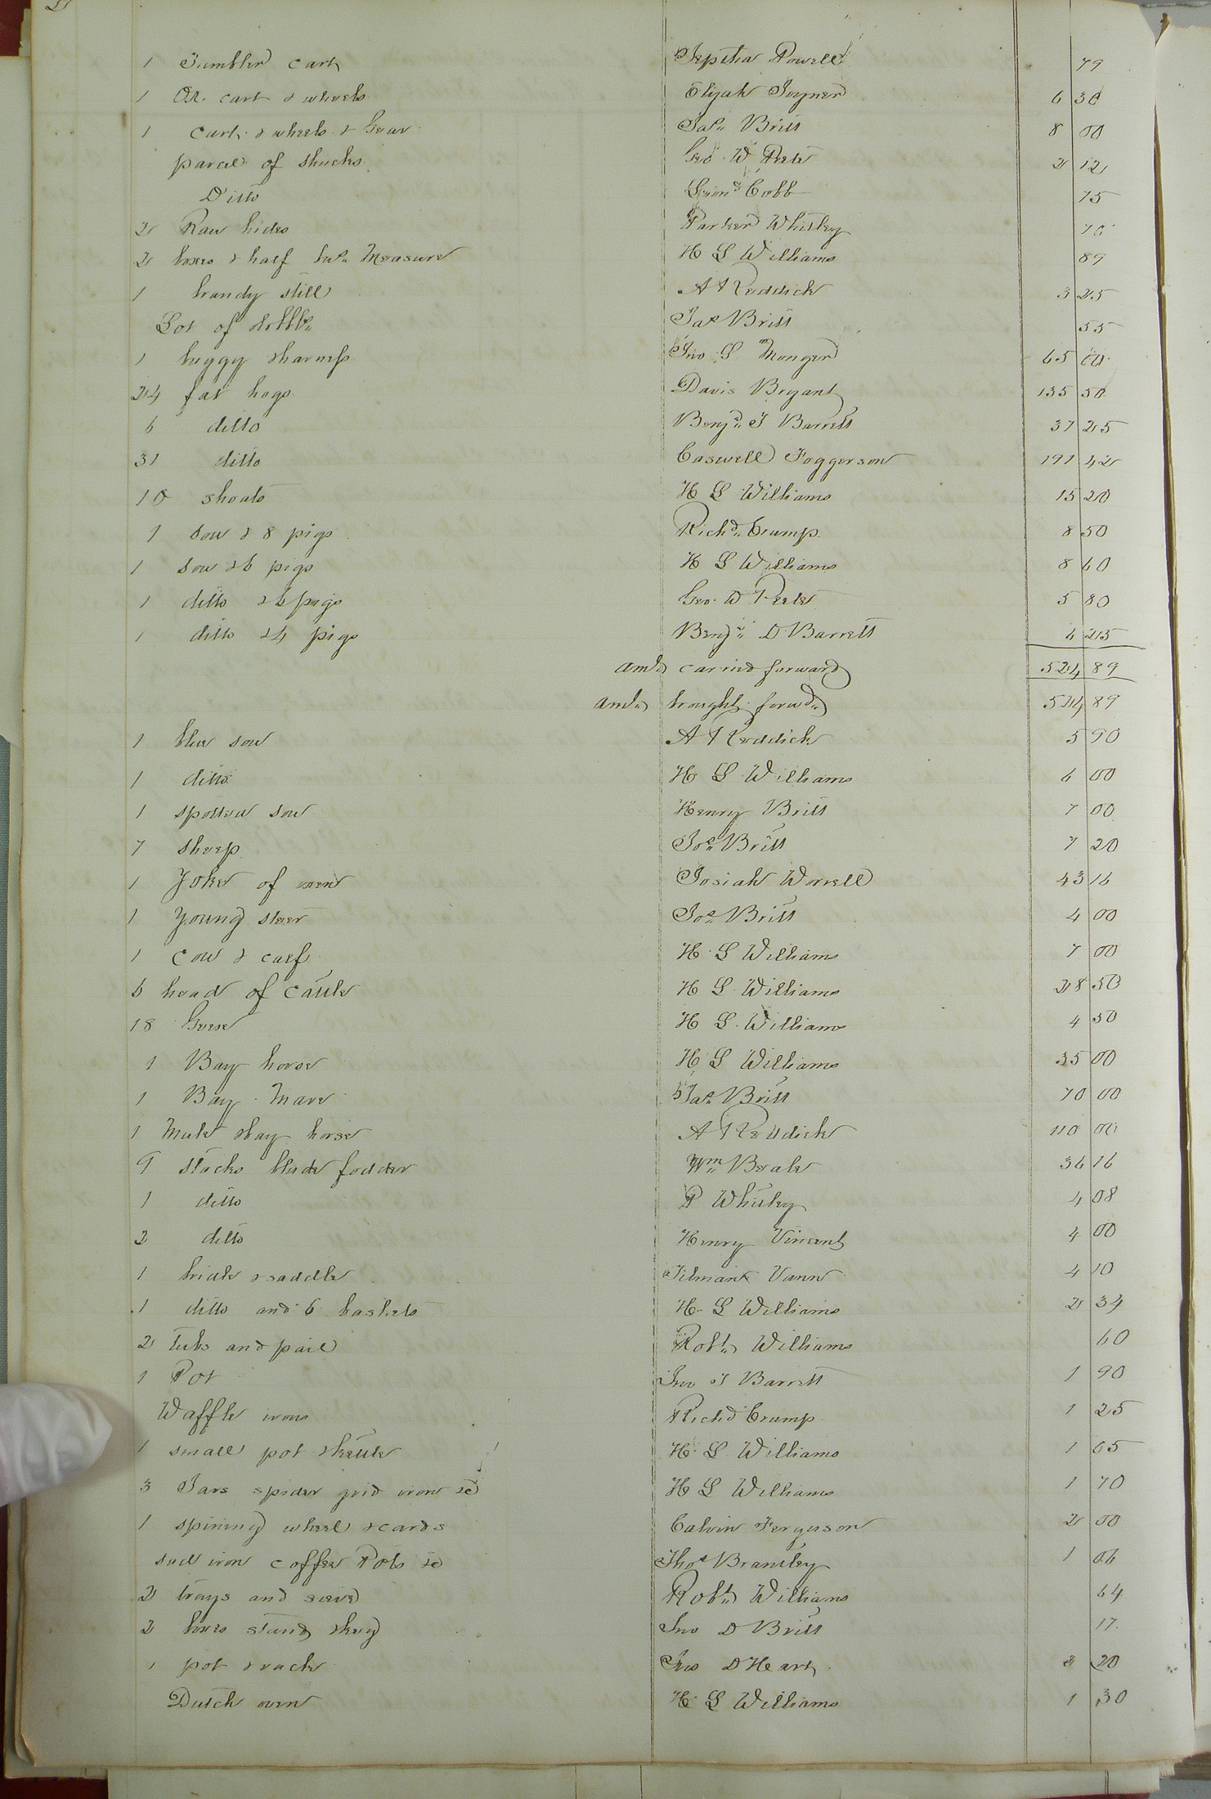 1 Tumbler cart Jeptha Powell 79
1 Ox cart & wheels Elijah Joyner 6 30
1 Cart & wheels & Gear Jas. Britt 8 00
parcel of shucks Geo W Peele 2 12
Ditto Cobb 75
2 Raw hides Parker Whitley 70
2 boxes & half bu. Measure H L Williams 89
1 brandy still A Riddick 3 25
Lot of Jas Britt 55
1 buggy & harness Jno L Monger 65 00
24 fat hogs Davis Bryant 135 50
6 ditto Benj. J Barrett 37 25
31 ditto Caswell Foggerson 191 42
10 shoats H L Williams 15 20
1 Sow & 8 pigs Richd. Crump 8 50
1 Sow & 6 pigs H L Williams 8 60
1 ditto & 6 pigs Geo. W Peele 5 80
1 ditto & 4 pigs Benj. D Barrett 6 25
amt. carried forward 524 89
amt. brought forwd. 524 89
1 blue sow A Riddick 5 90
1 ditto H L Williams 6 00
1 spotted sow Henry Britt 7 00
7 sheep Jos Britt 7 20
1 Yoke of oxen Josiah Worrell 43 16
1 Young steer Jos Britt 4 00
1 Cow & calf H L Williams 7 00
6 head of cattle H L Williams 28 50
18 Geese H L Williams 4 50
1 Bay horse H L Williams 35 00
1 Bay Mare Jas. Britt 70 00
1 Mule & bay horse A Riddick 110 00
9 stacks blade fodder Wm Beale 36 16
1 ditto P Whitley 4 08
2 ditto Henry Vincent 4 00
1 bridle & saddle Tilman Vann 4 10
1 ditto and 6 baskets H L Williams 2 34
2 tubs and pail Robt. Williams 60
1 Pot Jno J Barrett 1 90
Waffle irons Richd Crump 1 25
1 small pot & kettle H L Williams 1 65
3 Jars spider grid iron &c H L Williams 1 70
1 spining wheel & cards Calvin Ferguson 2 00
sad iron coffee Pots &c Thos Brantley 1 06
2 trays and sieve Robt. Williams 64
2 boxes stand & keg Jno D Britt 17
1 pot & rack Jno D Heart 2 20
Dutch oven H L Williams 1 30